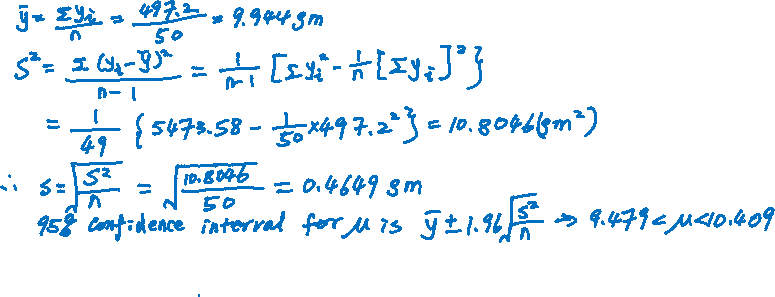 ȳ = Σyᵢ/n = 497.2/50 = 9.944 gm
S² = Σ(yᵢ-ȳ)²/n-1 = 1/n-1 [Σyᵢ² - 1/n [Σyᵢ]²}
= 1/49 {5473.58 - 1/50 × 497.2²} = 10.8046 (gm²)
∴ S = √S²/n = √10.8046/50 = 0.4649 gm
95% confidence interval for μ is ȳ ± 1.96 √S²/n ⇒ 9.479 < μ < 10.409